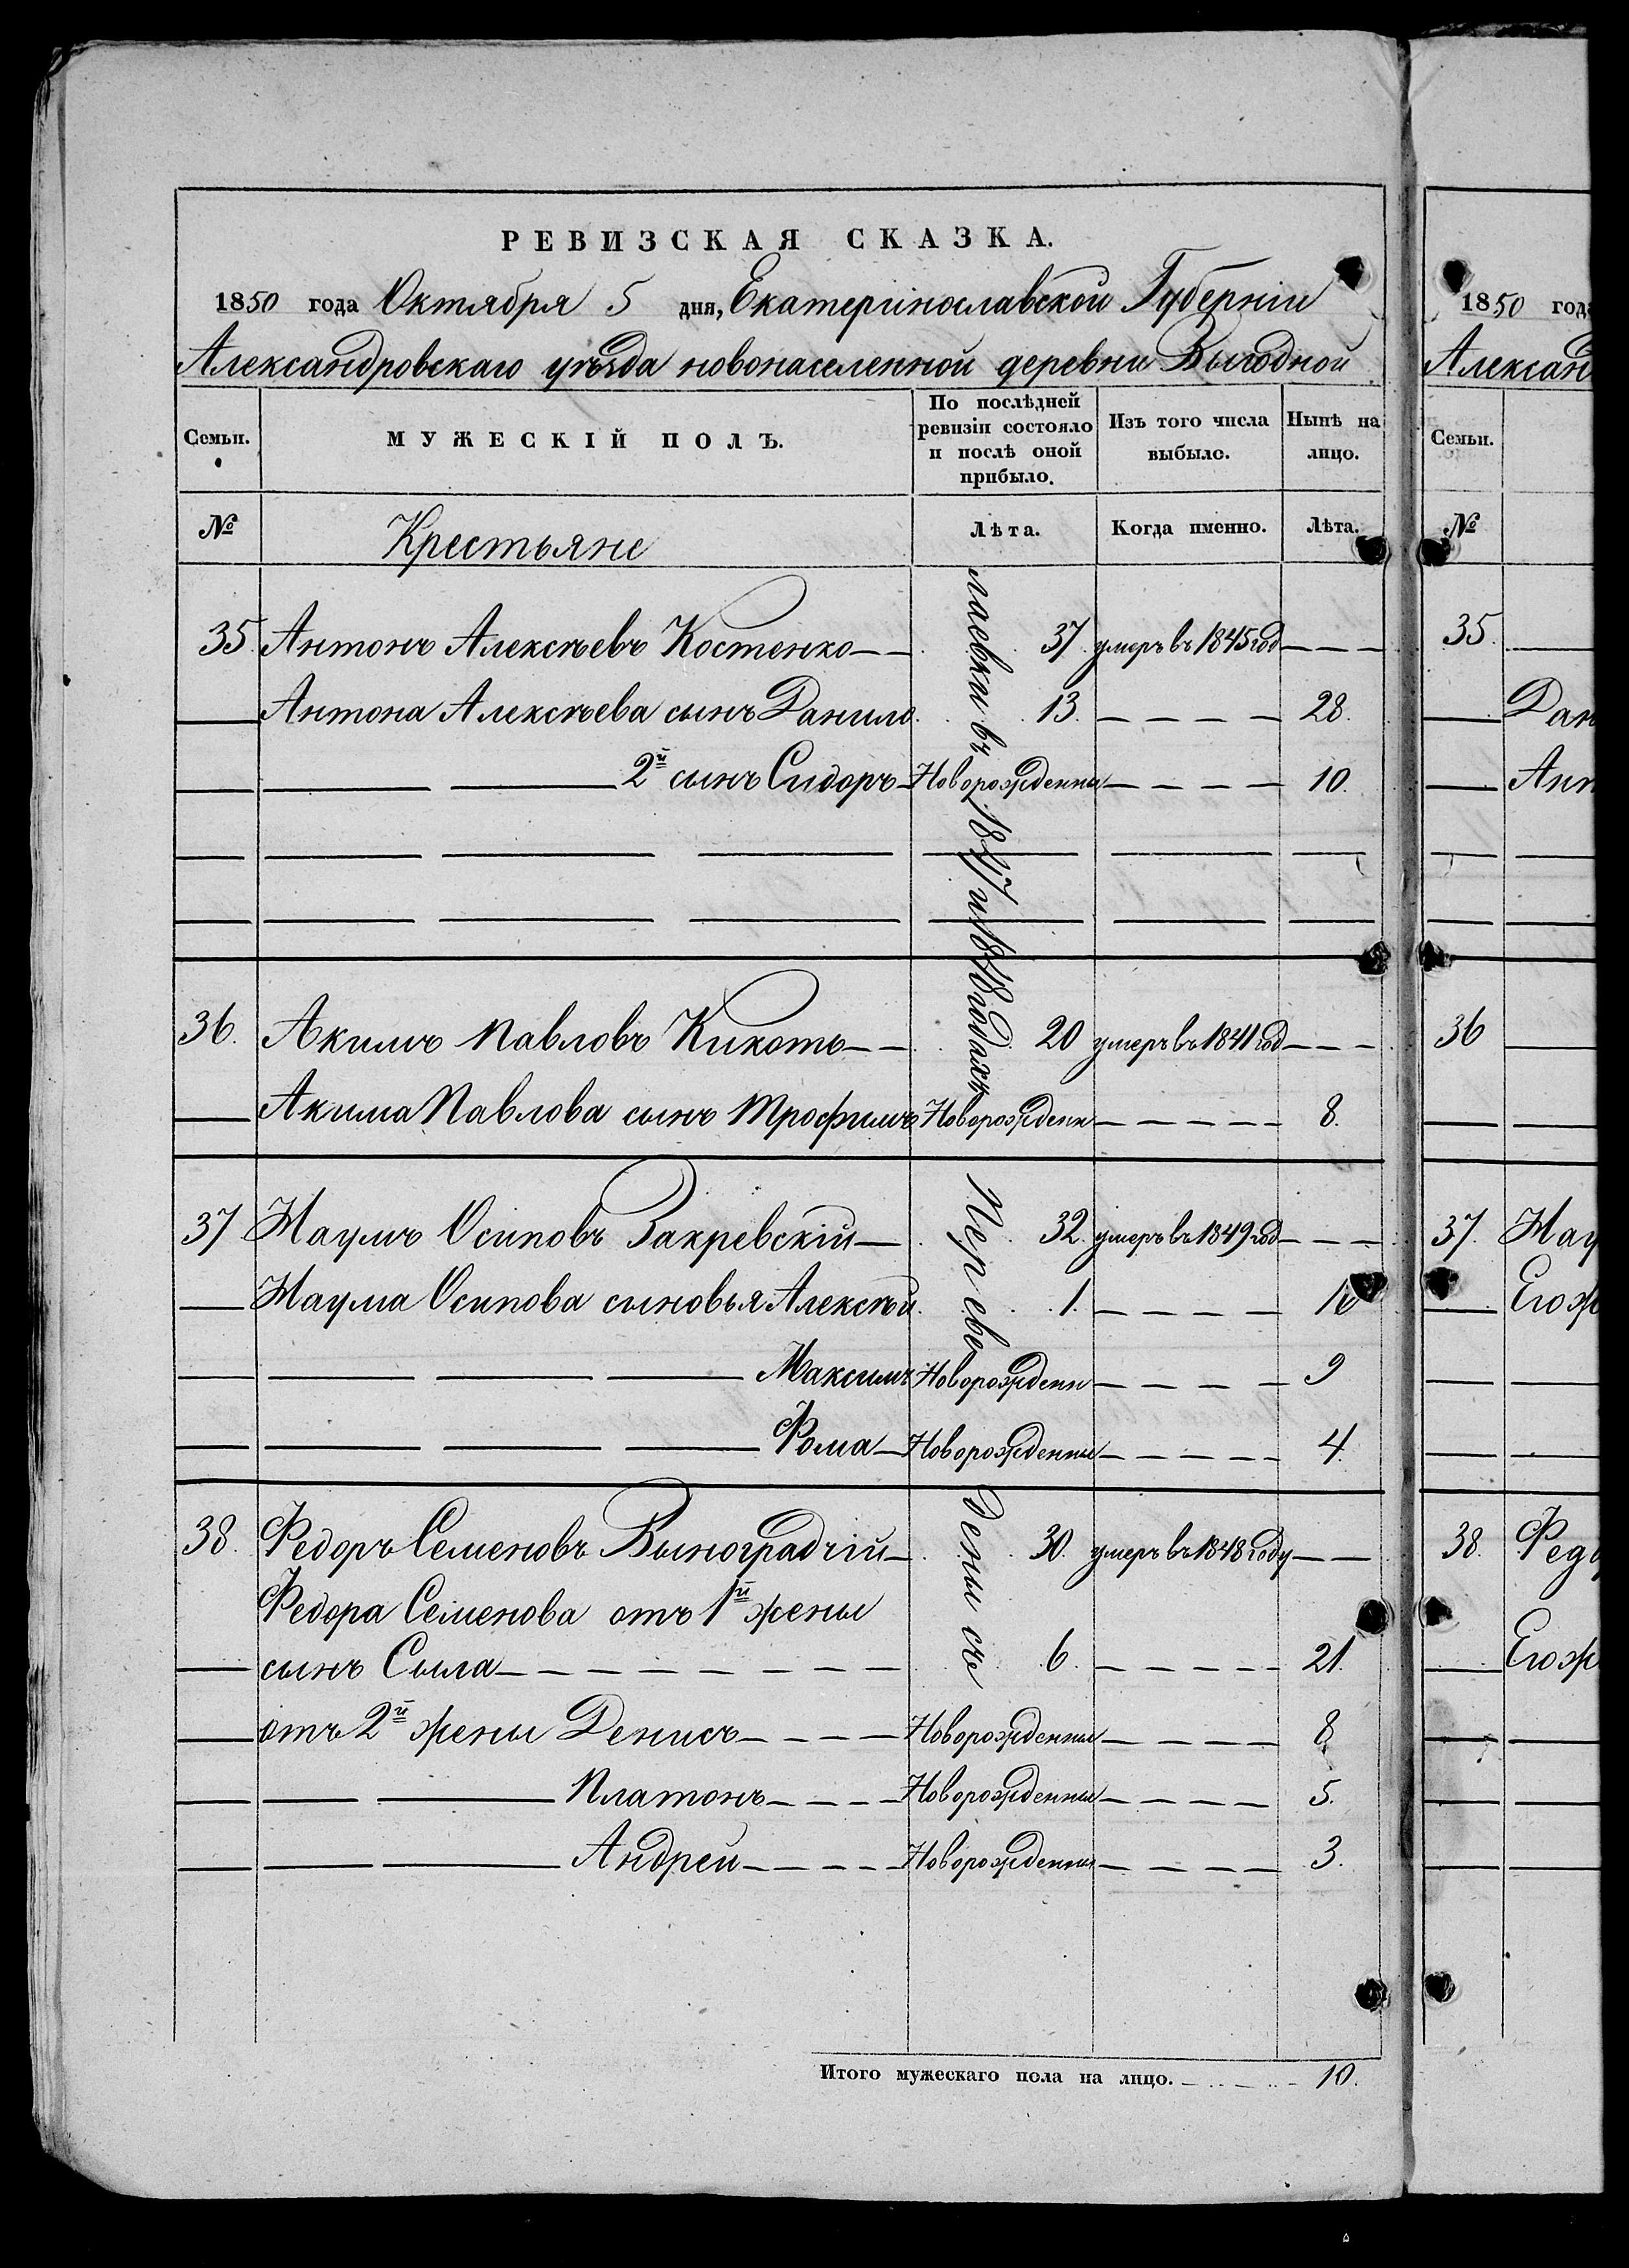 РЕВИЗСКАЯ СКАЗКА.
1850 года Октября 5 дня, Екатеринославской Губерніи
Александровскаго уѣзда новонаселенной деревни Выгодной
Семьи.
МУЖЕСКІЙ ПОЛЪ.
По послѣдней ревизіи состояло и послѣ оной прибыло.
Изъ того числа выбыло.
Нынѣ на лицо.
№ Крестьяне Лѣта. Когда именно. Лѣта.
35. Антонъ Алексѣевъ Костенко 37. умеръ въ 1845 год
Антона Алексѣева сынъ Данило 13. 28.
2й сынъ Сидоръ Новорожденны 10.
36. Акимъ Павловъ Кикоть 20 умеръ въ 1841 год
Акима Павлова сынъ Трофимъ Новорожденн 8.
37 Наумъ Осиповъ Закревскій 32. умеръ въ 1849 год
Наума Осипова сыновья Алексѣй 1. 16
Максимъ Новорожденн 9
Фома Новорожденны 4.
38. Федоръ Семеновъ Выноградчій 30. умеръ въ 1848 году
Федора Семенова отъ 1й жены
сынъ Сыла 6. 21.
отъ 2й жены Денисъ Новорожденны 8
Платонъ Новорожденны 5.
Андрей Новорожденны 3.
Переведены съ
лаевки въ 1847 и 1848 годахъ
Итого мужескаго пола на лицо. 10.
1850 года
Александ
Семьи.
№
35.
Дан
Ант
36
37. Нау
Его ж
38. Федо
Его ж